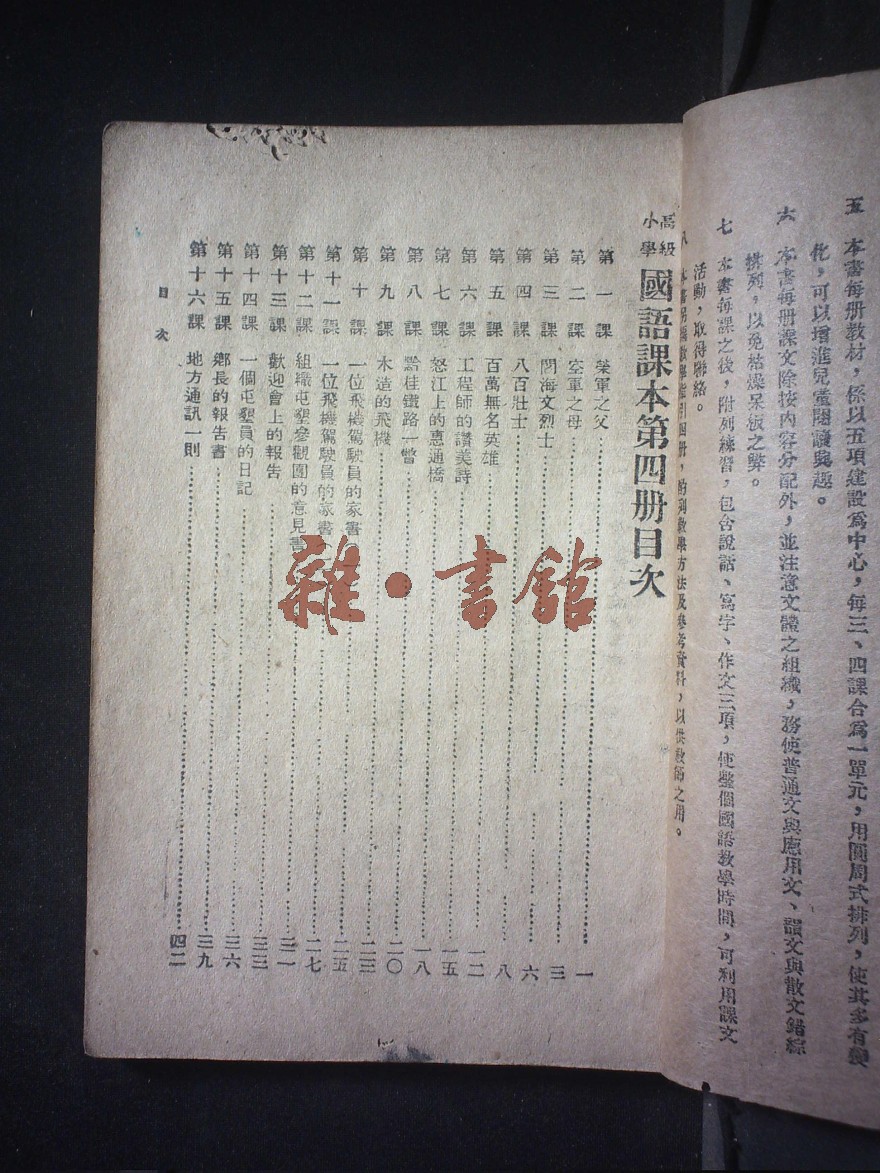 五 本書每册教材，係以五項建設爲中心，每三、四課合爲一單元，用圓周式排列，使其多有變
化，可以增進兒童閱讀興趣。
六 本書每册課文除按內容分配外，並注意文體之組織，務使普通文與應用文、韻文與散文錯綜
排列，以免枯燥呆板之弊。
七 本書每課之後，附列練習，包含說話、寫字、作文三項，使整個國語教學時間，可利用課文
活動，取得聯絡。
八 本書另編教學指引四册，酌列教學方法及參考資料，以供教師之用。
高級
小學 國語課本第四册目次
第一課 榮軍之父 一
第二課 空軍之母 三
第三課 閻海文烈士 六
第四課 八百壯士 八
第五課 百萬無名英雄
第六課 工程師的讚美詩 一二
第七課 怒江上的惠通橋 一五
第八課 黔桂鐵路一瞥 一八
第九課 木造的飛機 二〇
第十課 一位飛機駕駛員的家書 二三
第十一課 一位飛機駕駛員的家書 二五
第十二課 組織屯墾參觀團的意見書 二七
第十三課 歡迎會上的報告 三一
第十四課 一個屯墾員的日記 三三
第十五課 鄉長的報告書 三六
第十六課 地方通訊一則 三九
四二
目次
雜·書館